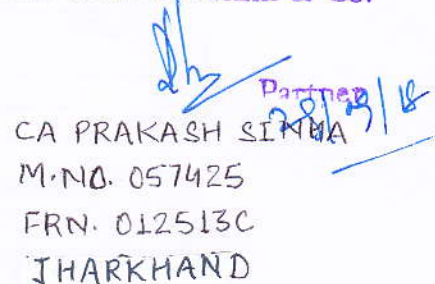 & Co.
Partner
28/09/18
CA PRAKASH SINHA
M.NO. 057425
FRN. 012513C
JHARKHAND